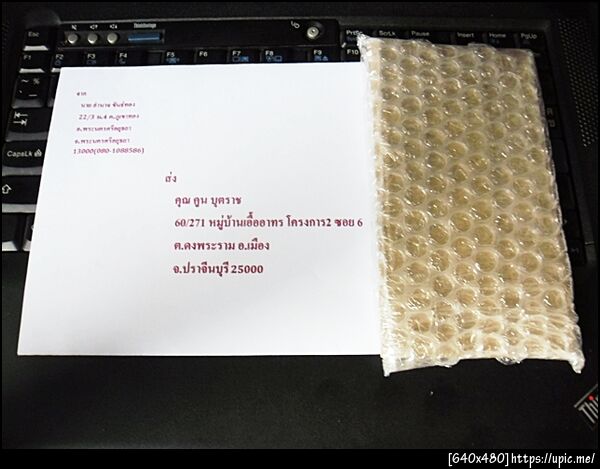 Esc
ThinkVantage
PrtSc ScrLk Pause Insert Home PgUp
F1 F2 F3 F4 F5 F6 F7 F8 F9
CapsLk
จาก
นาย อำนาจ ขันธ์ทอง
22/3 ม.4 ต.ภูเขาทอง
อ.พระนครศรีอยุธยา
จ.พระนครศรีอยุธยา
13000(080-1088586)
ส่ง
คุณ คูน บุตราช
60/271 หมู่บ้านเอื้ออาทร โครงการ2 ซอย 6
ต.ดงพระราม อ.เมือง
จ.ปราจีนบุรี 25000
[640x480]https://upic.me/